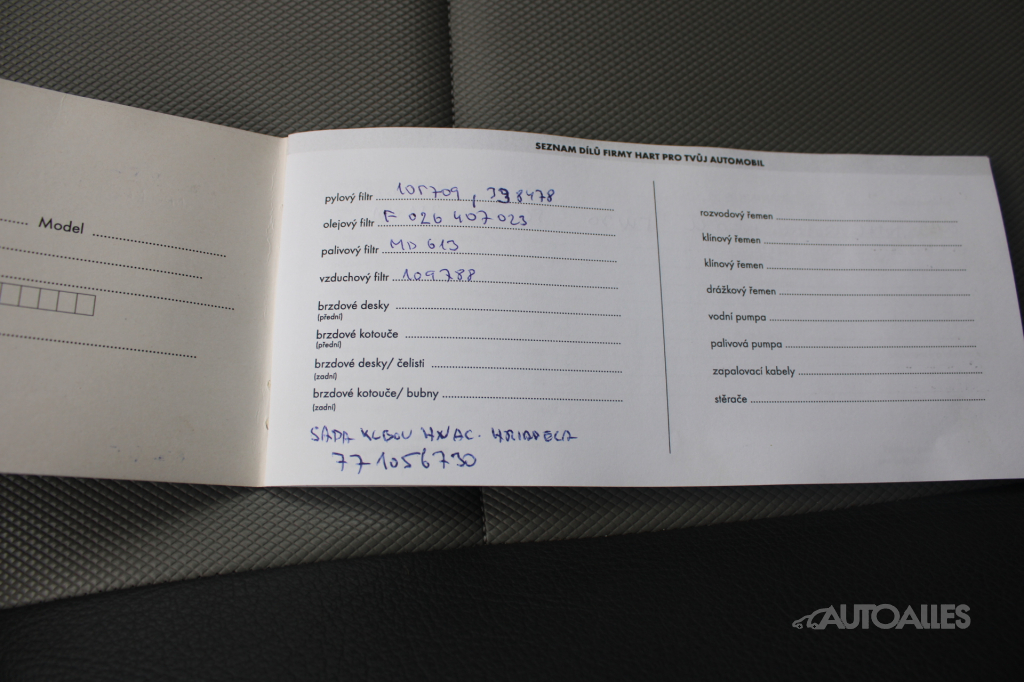 Model
SEZNAM DÍLŮ FIRMY HART PRO TVŮJ AUTOMOBIL
pylový filtr 105709, 398478
olejový filtr F 026 407 023
palivový filtr MD 613
vzduchový filtr 109788
brzdové desky
(přední)
brzdové kotouče
(přední)
brzdové desky/ čelisti
(zadní)
brzdové kotouče/ bubny
(zadní)
SADA KLBOU HNAC. HRIADELA
771056730
rozvodový řemen
klínový řemen
klínový řemen
drážkový řemen
vodní pumpa
palivová pumpa
zapalovací kabely
stěrače
AUTOALLES